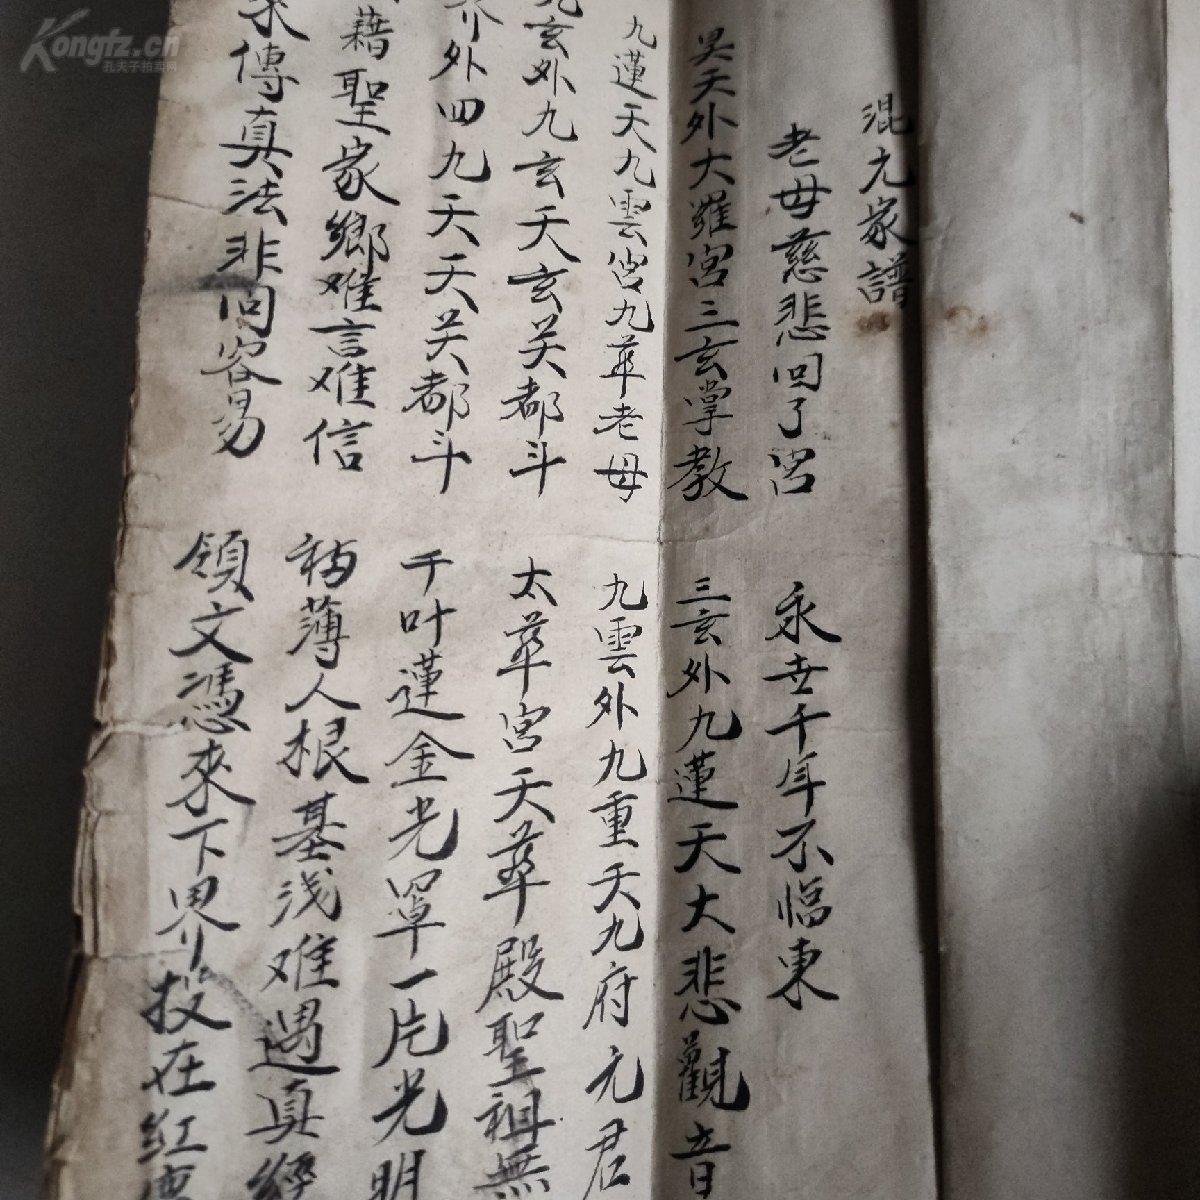 混元家譜
老母慈悲回了宮 永世千年不臨東
昊天外大羅宮三玄掌教 三玄外九蓮天大悲觀音
九蓮天九雲宮九華老母 九雲外九重天九府元君
玄外九玄天玄关都斗 太華宮天華殿聖祖無
界外四九天天关都斗 千叶蓮金光罩一片光明
藉聖家鄉难言难信 福薄人根基浅难遇真經
來傳真法非同容易 領文憑來下界投在红
Kongfz.cn
孔夫子拍卖网